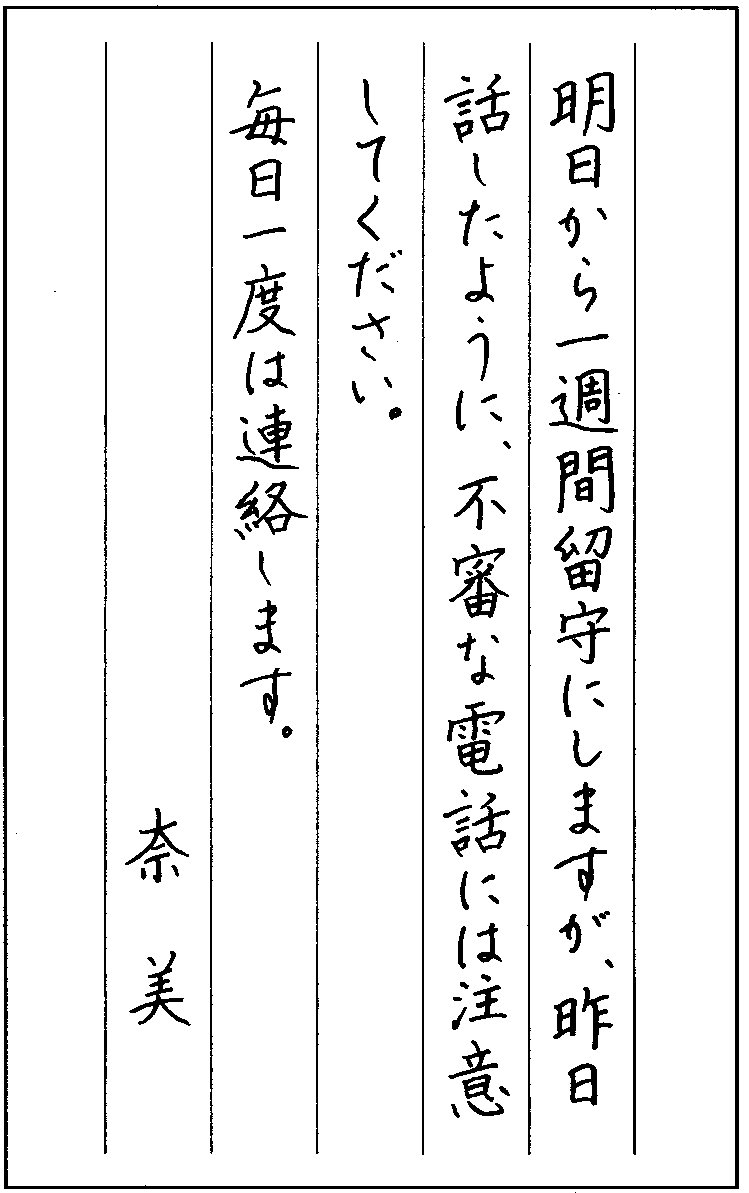 明日から一週間留守にしますが、昨日
話したように、不審な電話には注意
してください。
毎日一度は連絡します。
奈美